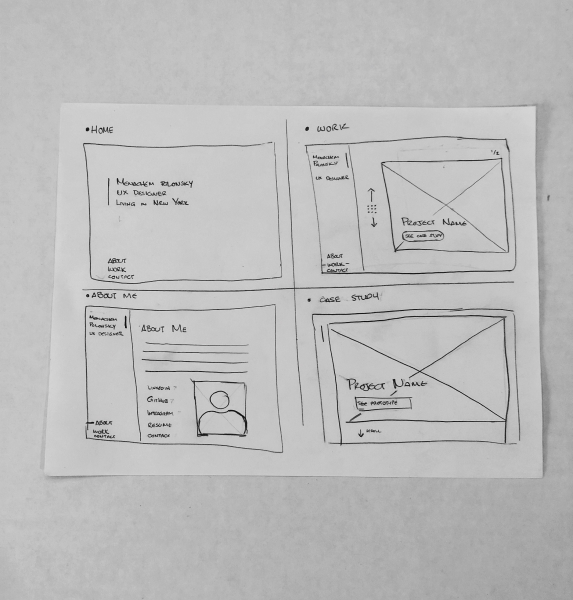 • HOME
MENACHEM PILONSKY
UX DESIGNER
LIVING IN NEW YORK
ABOUT
WORK
CONTACT
• WORK
MENACHEM
PILONSKY
UX DESIGNER
1/2
PROJECT NAME
SEE CASE STUDY
ABOUT
WORK
CONTACT
• ABOUT ME
MENACHEM
PILONSKY
UX DESIGNER
ABOUT ME
LINKEDIN
GITHUB
INSTAGRAM
RESUME
CONTACT
ABOUT
WORK
CONTACT
• CASE STUDY
PROJECT NAME
SEE PROTOTYPE